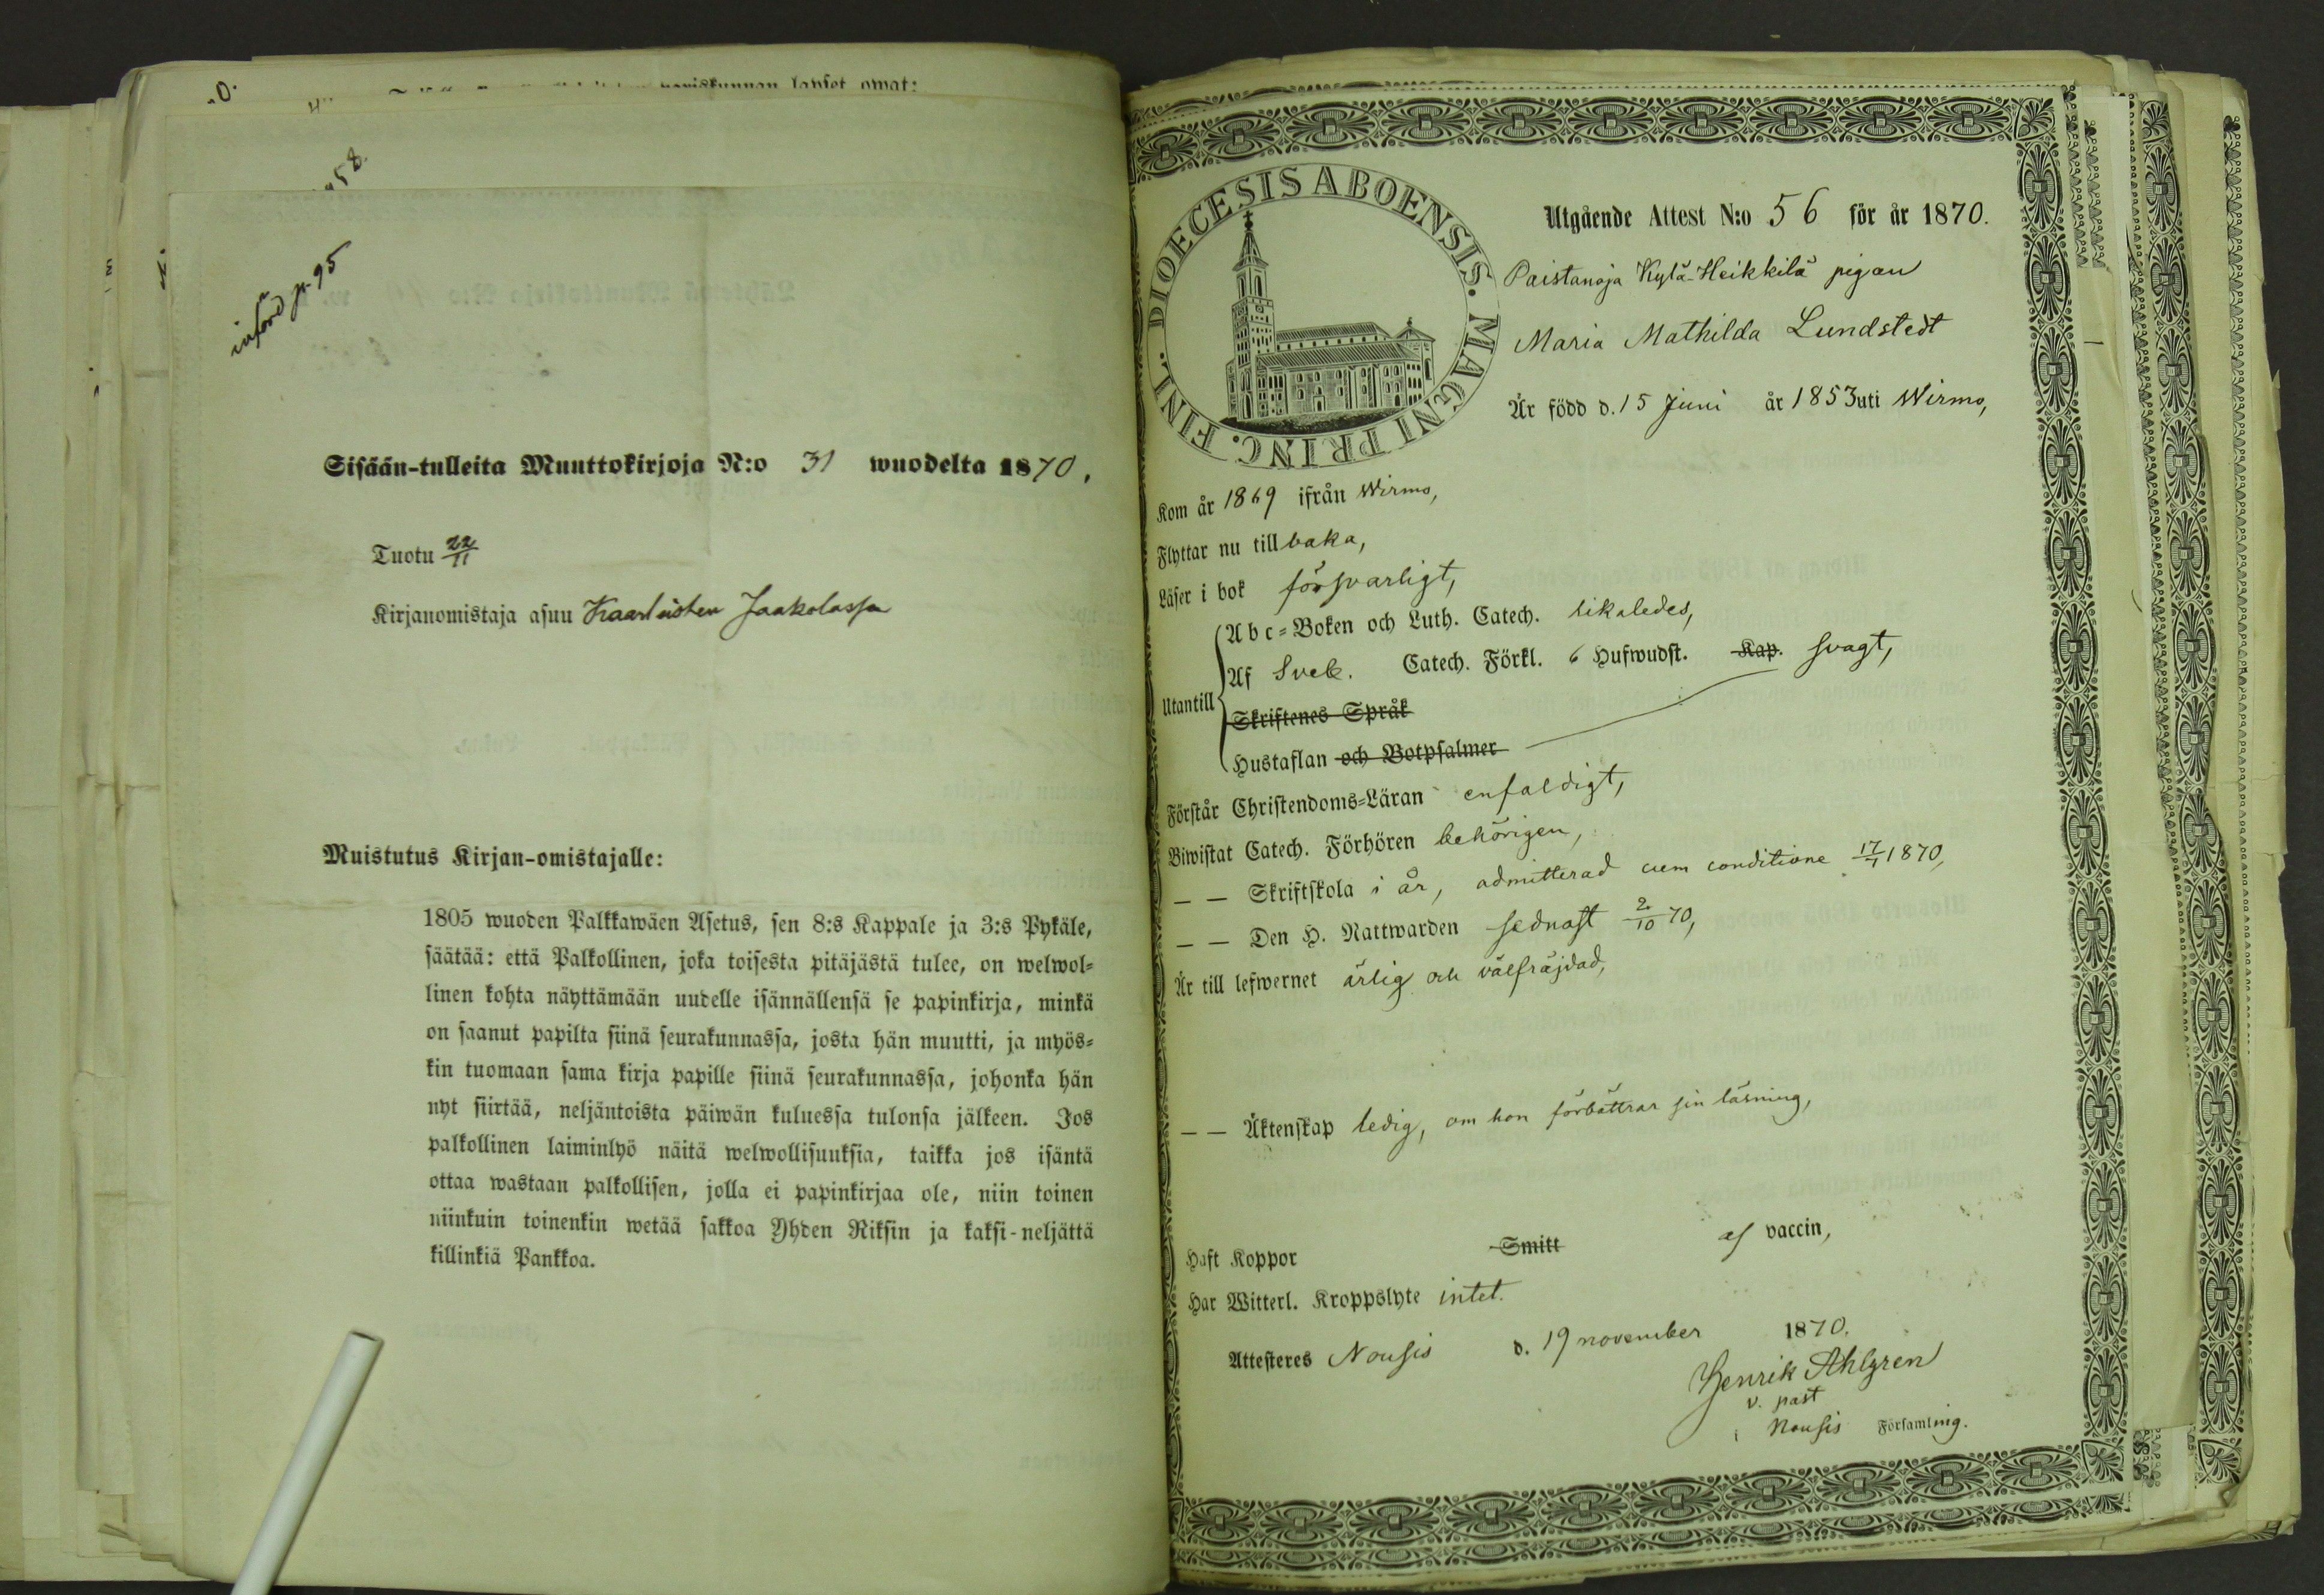 pariskunnan lapset owat:
införd p. 95
Sisään-tulleita Muuttokirjoja N:o 31 wuodelta 1870.
Tuotu 22/11
Kirjanomistaja asuu Kaarleisten Jaakolassa
Muistutus Kirjan-omistajalle:
1805 wuoden Palkkawäen Asetus, sen 8:s Kappale ja 3:s Pykäle,
säätää: että Palkollinen, joka toisesta pitäjästä tulee, on welwol-
linen kohta näyttämään uudelle isännällensä se papinkirja, minkä
on saanut papilta siinä seurakunnassa, josta hän muutti, ja myös-
kin tuomaan sama kirja papille siinä seurakunnassa, johonka hän
nyt siirtää, neljäntoista päiwän kuluessa tulonsa jälkeen. Jos
palkollinen laiminlyö näitä welwollisuuksia, taikka jos isäntä
ottaa wastaan palkollisen, jolla ei papinkirjaa ole, niin toinen
niinkuin toinenkin wetää sakkoa Yhden Riksin ja kaksi-neljättä
killinkiä Pankkoa.
DIOECESIS ABOENSIS. MAGNI PRINC. FINL.
Utgående Attest N:o 56 för år 1870.
Paistanoja Kylä-Heikkilä pigan
Maria Mathilda Lundstedt
Är född d. 15 Juni år 1853 uti Wirmo,
Kom år 1869 ifrån Wirmo,
Flyttar nu tillbaka,
Läser i bok försvarligt,
Abc-Boken och Luth. Catech. likaledes,
Utantill Af Sveb. Catech. Förkl. 6 Hufwudst. Kap. svagt,
Skriftenes Språk
Hustaflan och Botpsalmer
Förstår Christendoms-Läran enfaldigt,
Biwistat Catech. Förhören behörigen,
— — Skriftskola i år, admitterad cum conditione 17/1 1870,
— — Den H. Nattwarden sednast 2/10 70,
Är till lefwernet ärlig och välfräjdad,
— — Äktenskap ledig, om hon förbättrar sin läsning,
Haft Koppor Smitt af vaccin,
Har Witterl. Kroppslyte intet.
Attesteres Nousis d. 19 november 1870.
Henrik Ahlgren
v. past
i Nousis Församling.